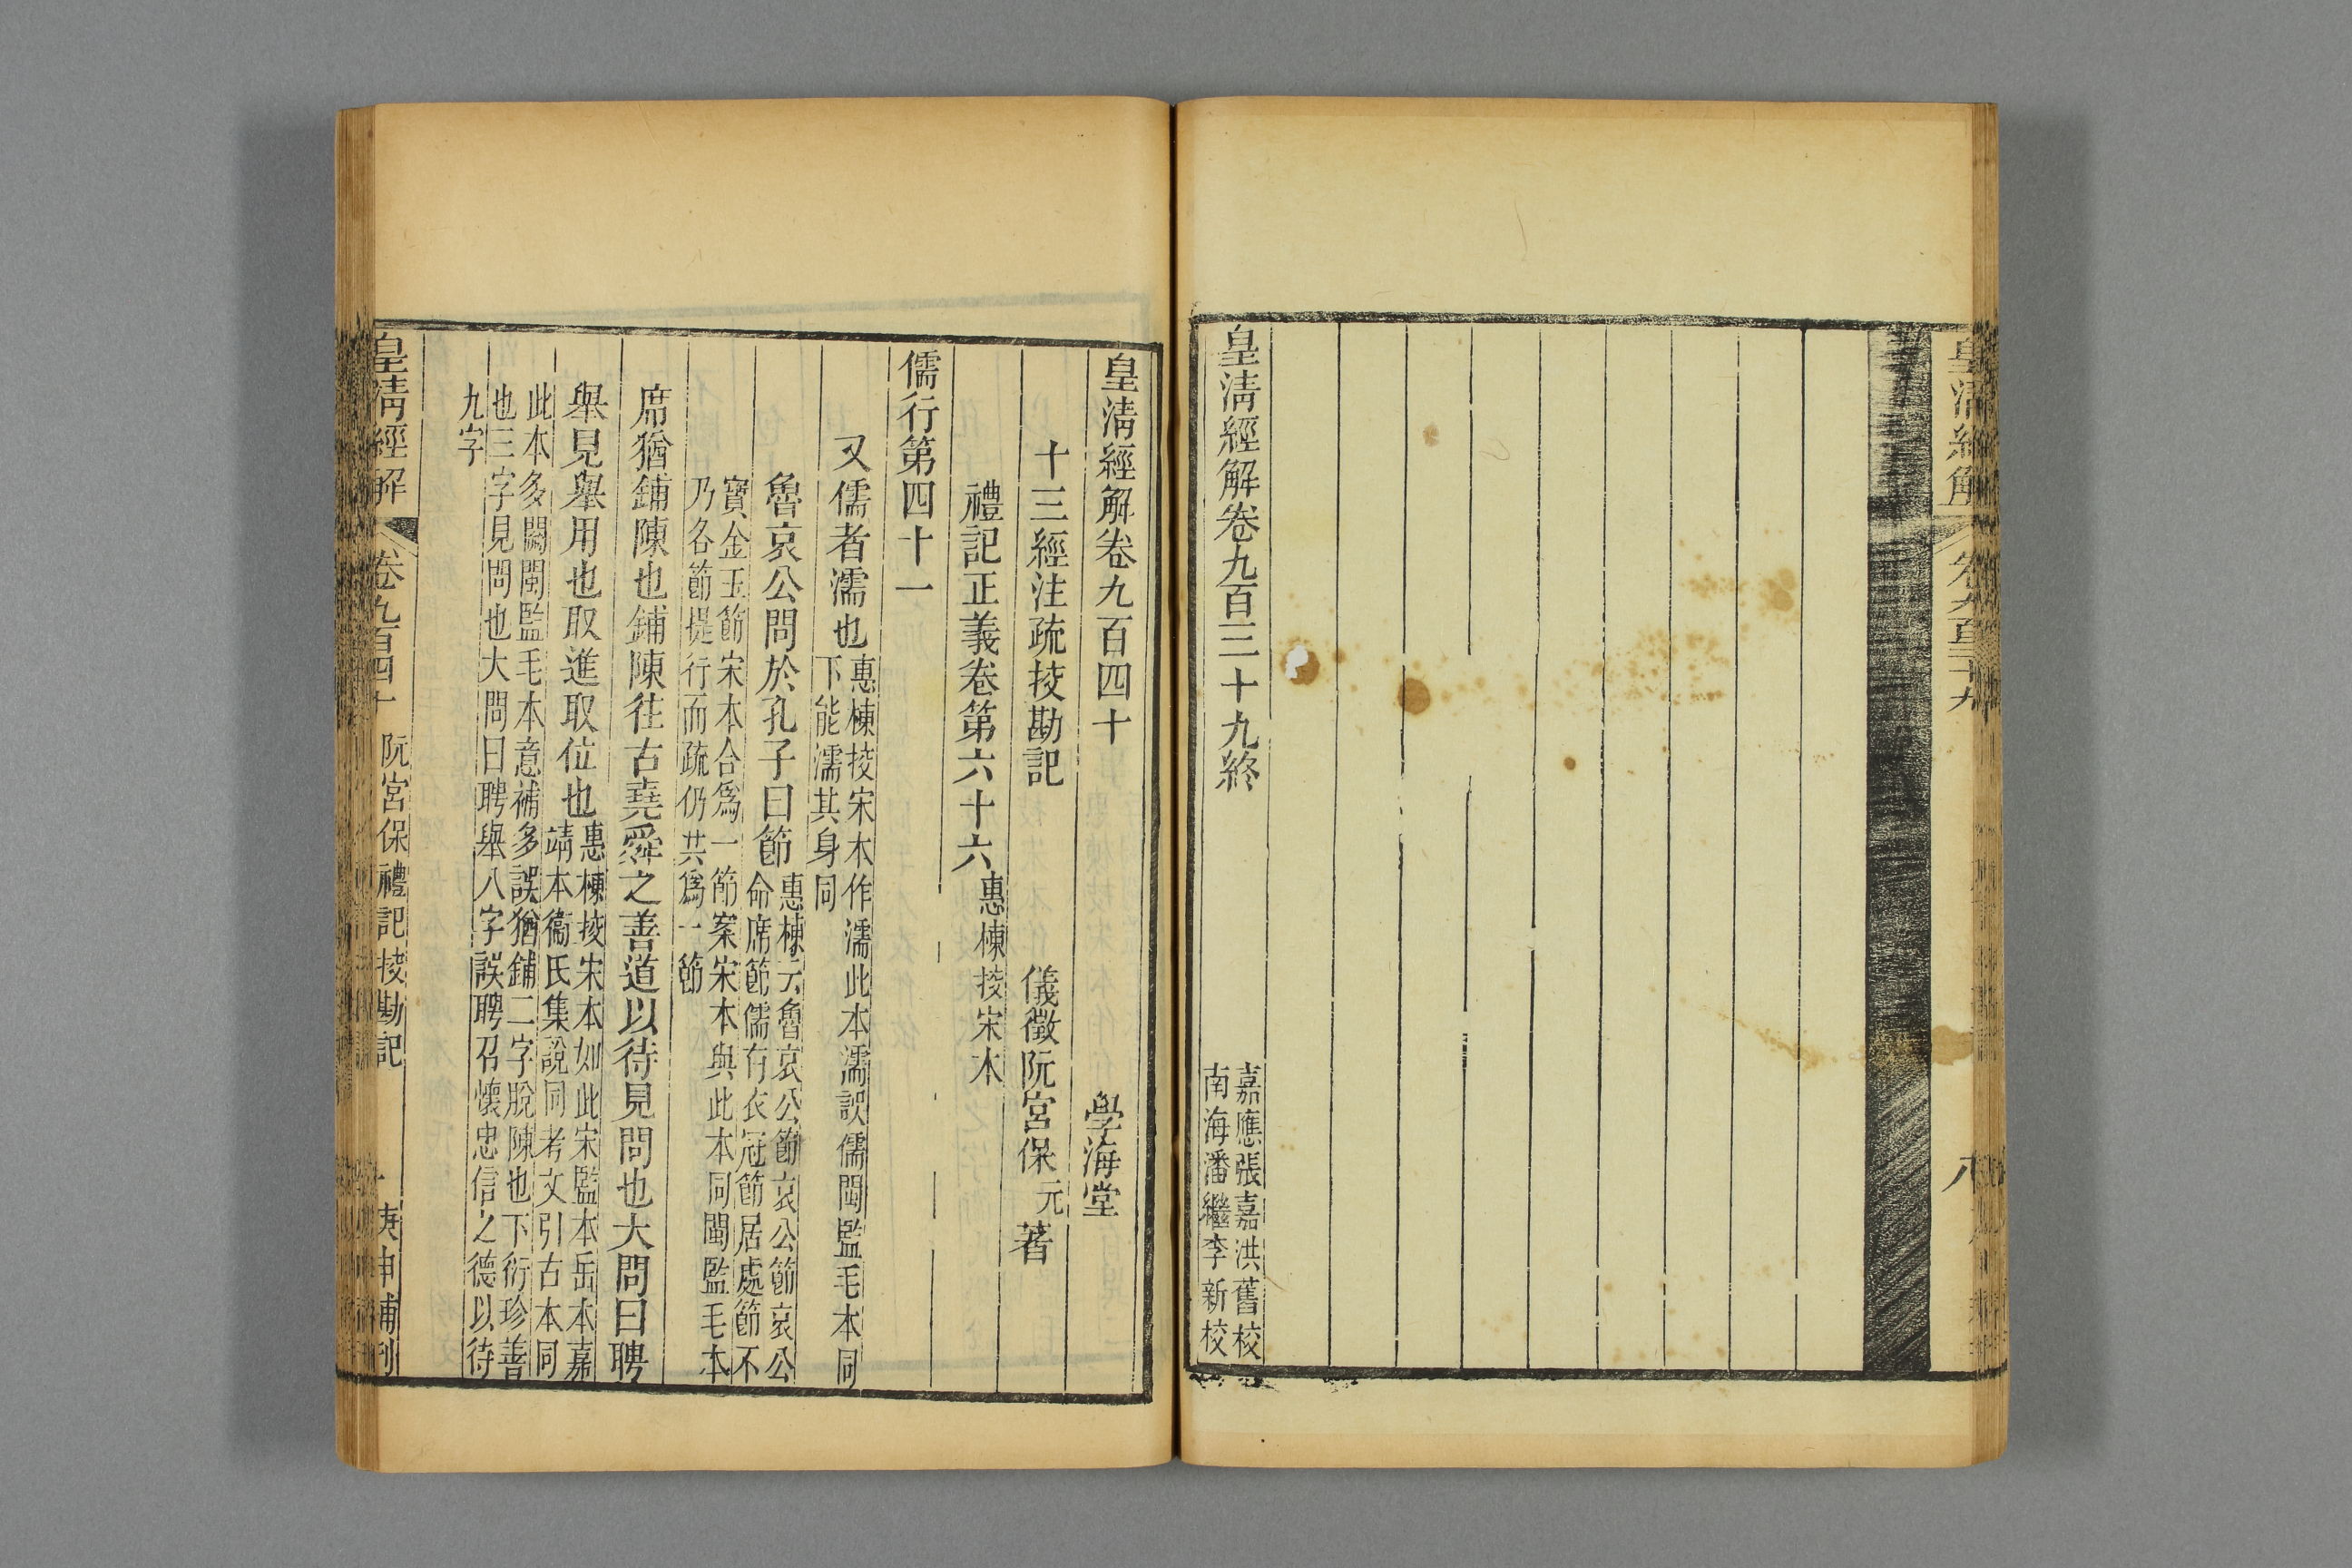 皇清經解卷九百三十九終
嘉應張嘉洪舊校
南海潘繼李新校
皇清經解卷九百四十
學海堂
十三經注疏挍勘記
儀徵阮宮保元著
禮記正義卷第六十六惠棟挍宋本
儒行第四十一
又儒者濡也惠棟挍宋本作濡此本濡誤儒閩監毛本同
下能濡其身同
魯哀公問於孔子曰節惠棟云魯哀公節哀公節哀公
命席節儒有衣冠節居處節不
寶金玉節宋本合爲一節案宋本與此本同閩監毛本
乃各節提行而疏仍共爲一節
席猶鋪陳也鋪陳往古堯舜之善道以待見問也大問曰聘
舉見舉用也取進取位也惠棟挍宋本如此宋監本岳本嘉
靖本衞氏集說同考文引古本同
此本多闕閩監毛本意補多誤猶鋪二字脫陳也下衍珍善
也三字見問也大問曰聘舉八字誤聘召懷忠信之德以待
九字
皇清經解
卷九百四十
阮宮保禮記挍勘記
一
庚申補刊